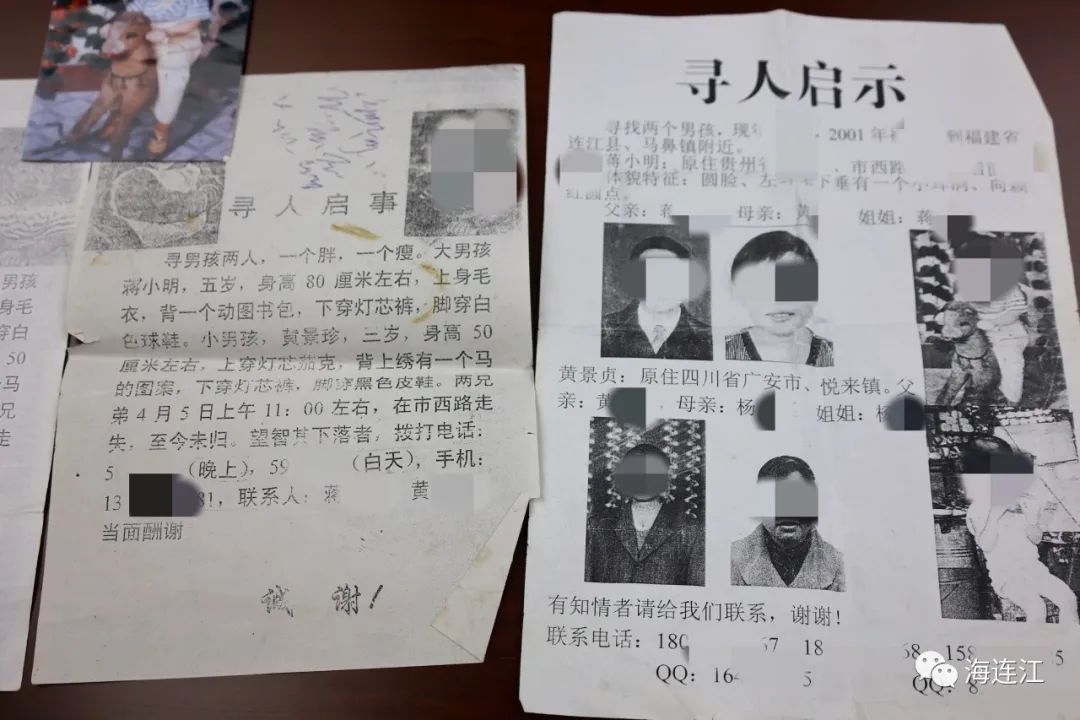 寻人启事
寻男孩两人，一个胖，一个瘦。大男孩
蒋小明，五岁，身高80厘米左右，上身毛
衣，背一个动图书包，下穿灯芯裤，脚穿白
色球鞋。小男孩，黄景珍，三岁，身高50
厘米左右，上穿灯芯茄克，背上绣有一个马
的图案，下穿灯芯裤，脚穿黑色皮鞋。两兄
弟4月5日上午11：00左右，在市西路走
失，至今未归。望智其下落者，拨打电话：
5 （晚上），59 （白天），手机：
13 81，联系人：蒋 黄
当面酬谢
诚 谢！
男孩
身毛
穿白
50
马
兄
走
寻人启示
寻找两个男孩，现 ，2001年 到福建省
连江县、马鼻镇附近。
蒋小明：原住贵州 市西路
体貌特征：圆脸、左 下垂有一个小
红圆点。
父亲：蒋 母亲：黄 姐姐：蒋
黄景贞：原住四川省广安市、悦来镇。父
亲：黄 母亲：杨 姐姐：杨
有知情者请给我们联系，谢谢！
联系电话：180 67 18 68 158 5
QQ：164 5 QQ：8
海连江